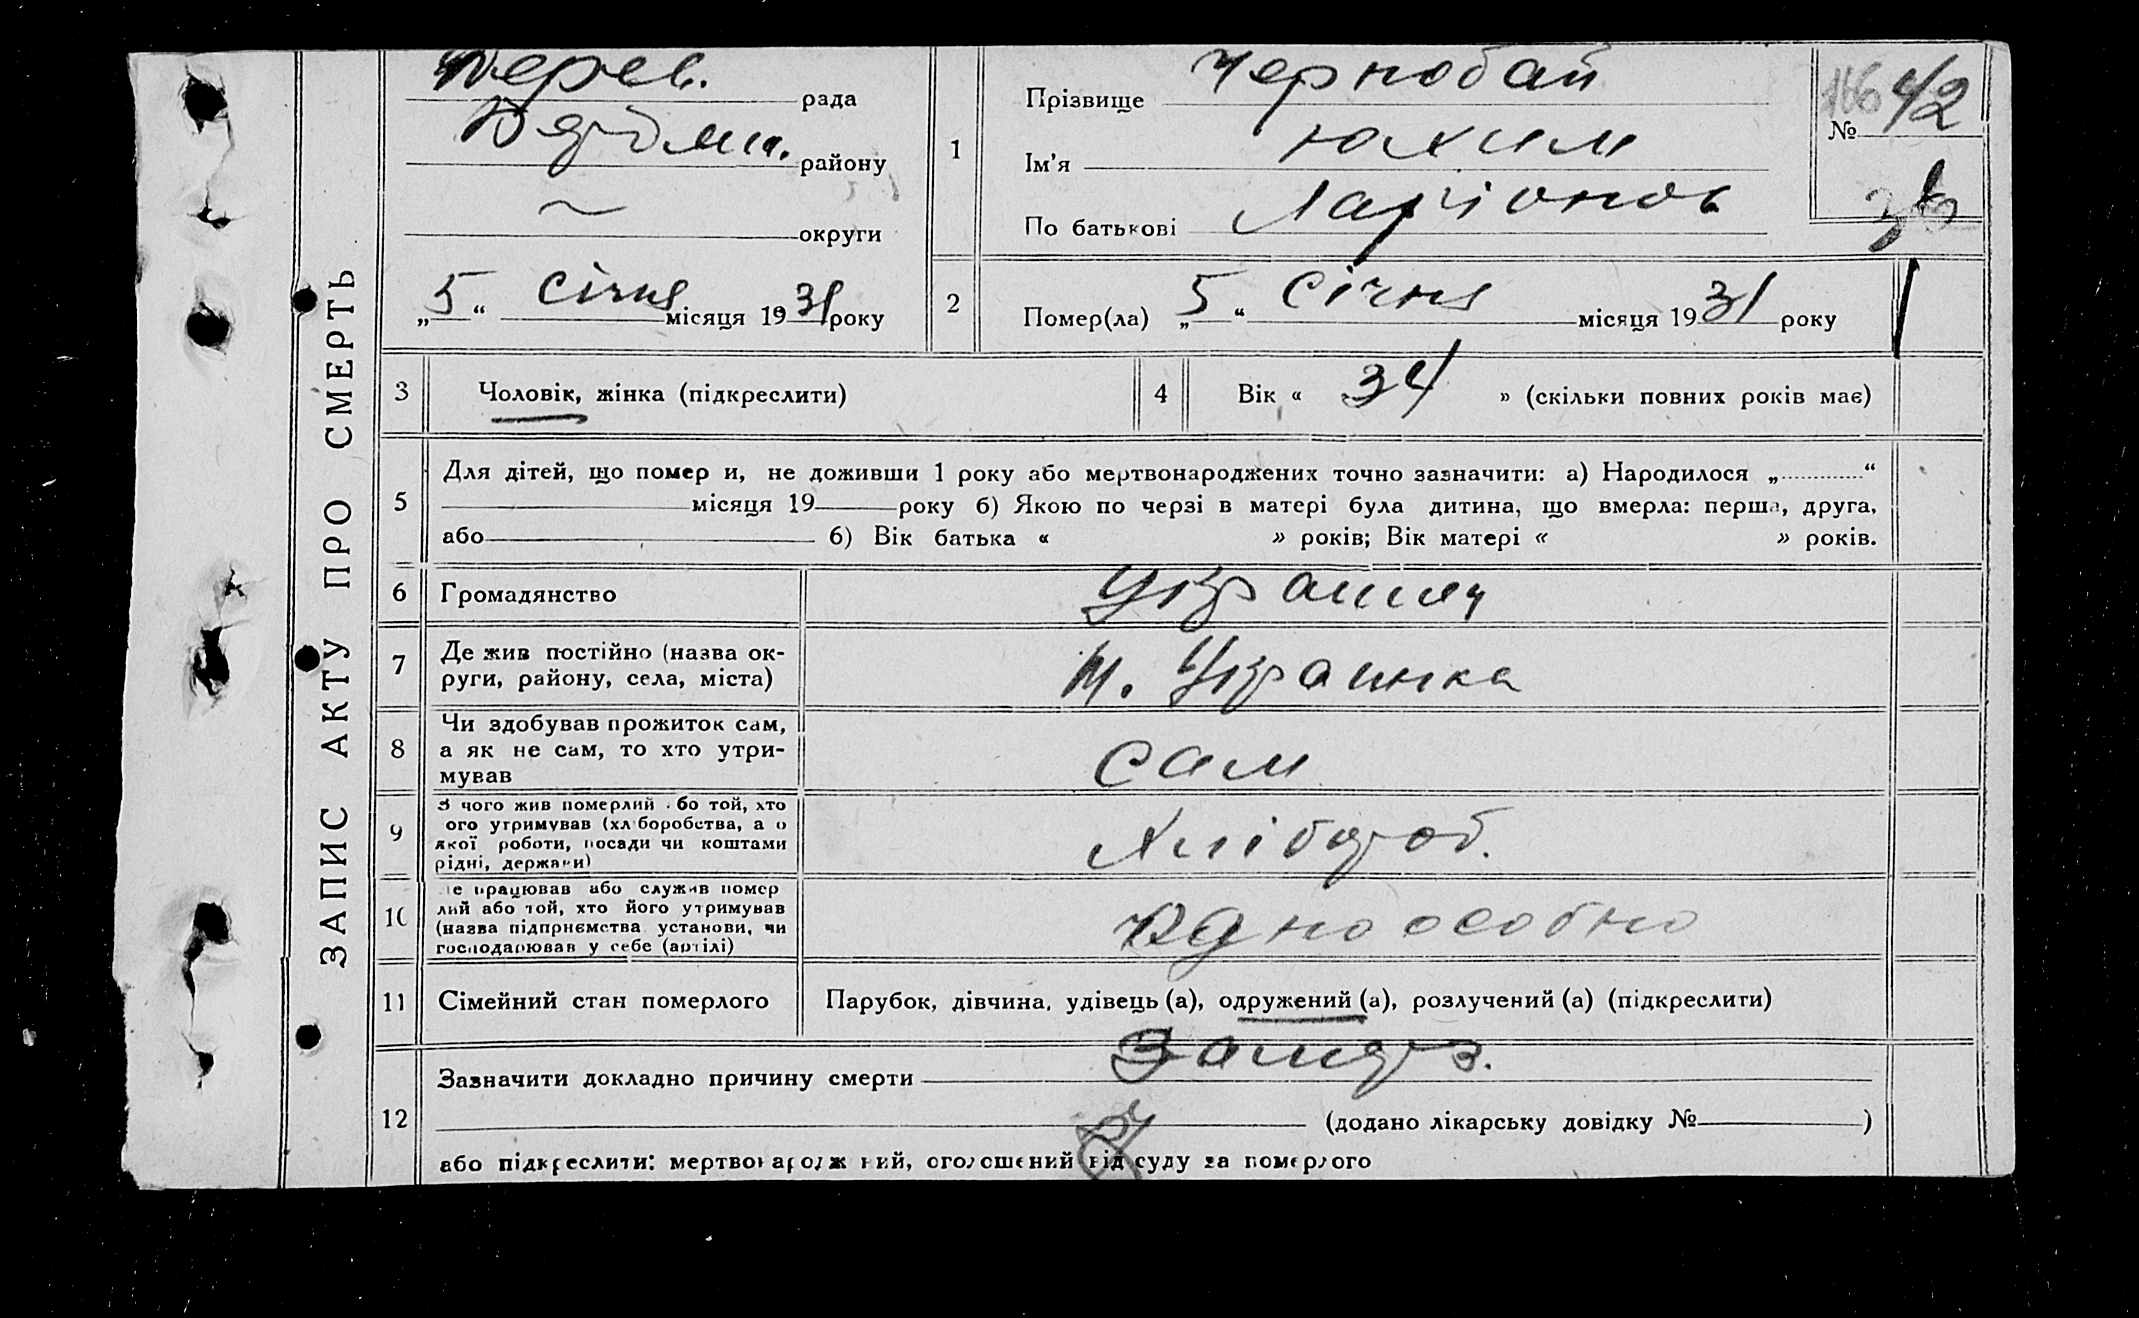 ЗАПИС АКТУ ПРО СМЕРТЬ
Дерев. рада
району
округи
„5“ січня місяця 1931 року
1
Прізвище Чернобай
Ім'я Юхим
По батькові Ларіонов
№ 42
2
Помер(ла) „5“ Січня місяця 1931 року
3 Чоловік, жінка (підкреслити)
4 Вік « 34 » (скільки повних років має)
5 Для дітей, що помер и, не доживши 1 року або мертвонароджених точно зазначити: а) Народилося „ “
місяця 19 року б) Якою по черзі в матері була дитина, що вмерла: перша, друга,
або б) Вік батька « » років; Вік матері « » років.
6 Громадянство Украинец
7 Де жив постійно (назва ок-
руги, району, села, міста) М. Украинка
8 Чи здобував прожиток сам,
а як не сам, то хто утри-
мував сам
9 З чого жив померлий або той, хто
ого утримував (хліборобства, а о
якої роботи, посади чи коштами
рідні, держави) Хлібороб.
10 е працював або служив помер
лий або той, хто його утримував
(назва підприємства установи, чи
господарював у себе (артілі) Одноособно
11 Сімейний стан померлого Парубок, дівчина, удівець (а), одружений (а), розлучений (а) (підкреслити)
12 Зазначити докладно причину смерти Замерз.
(додано лікарську довідку № )
або підкреслити: мертвонароджений, оголошений від суду за померлого